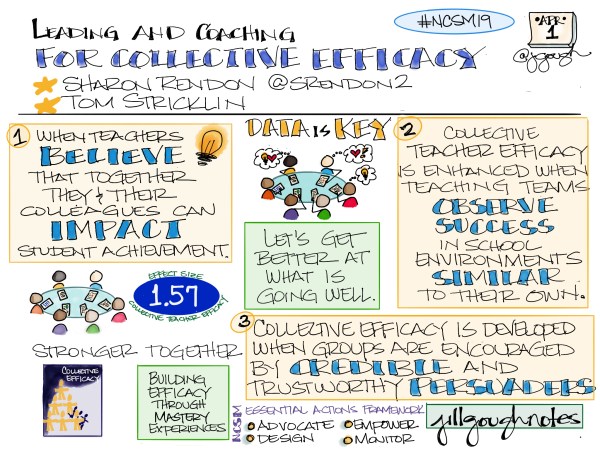 LEADING AND COACHING
FOR COLLECTIVE EFFICACY
#NCSM19
APR
1
@jgough
SHARON RENDON @SRENDON2
TOM STRICKLIN
1 WHEN TEACHERS
BELIEVE
THAT TOGETHER
THEY & THEIR
COLLEAGUES CAN
IMPACT
STUDENT ACHIEVEMENT.
DATA IS KEY
LET'S GET
BETTER AT
WHAT IS
GOING WELL.
2 COLLECTIVE
TEACHER EFFICACY
IS ENHANCED WHEN
TEACHING TEAMS
OBSERVE
SUCCESS
IN SCHOOL
ENVIRONMENTS
SIMILAR
TO THEIR OWN.
EFFECT SIZE
1.57
COLLECTIVE TEACHER EFFICACY
3 COLLECTIVE EFFICACY IS DEVELOPED
WHEN GROUPS ARE ENCOURAGED
BY CREDIBLE AND
TRUSTWORTHY PERSUADERS
STRONGER TOGETHER
COLLECTIVE
EFFICACY
BUILDING
EFFICACY
THROUGH
MASTERY
EXPERIENCES
NCSM
ESSENTIAL ACTIONS FRAMEWORK
ADVOCATE EMPOWER
DESIGN MONITOR
jillgoughnotes